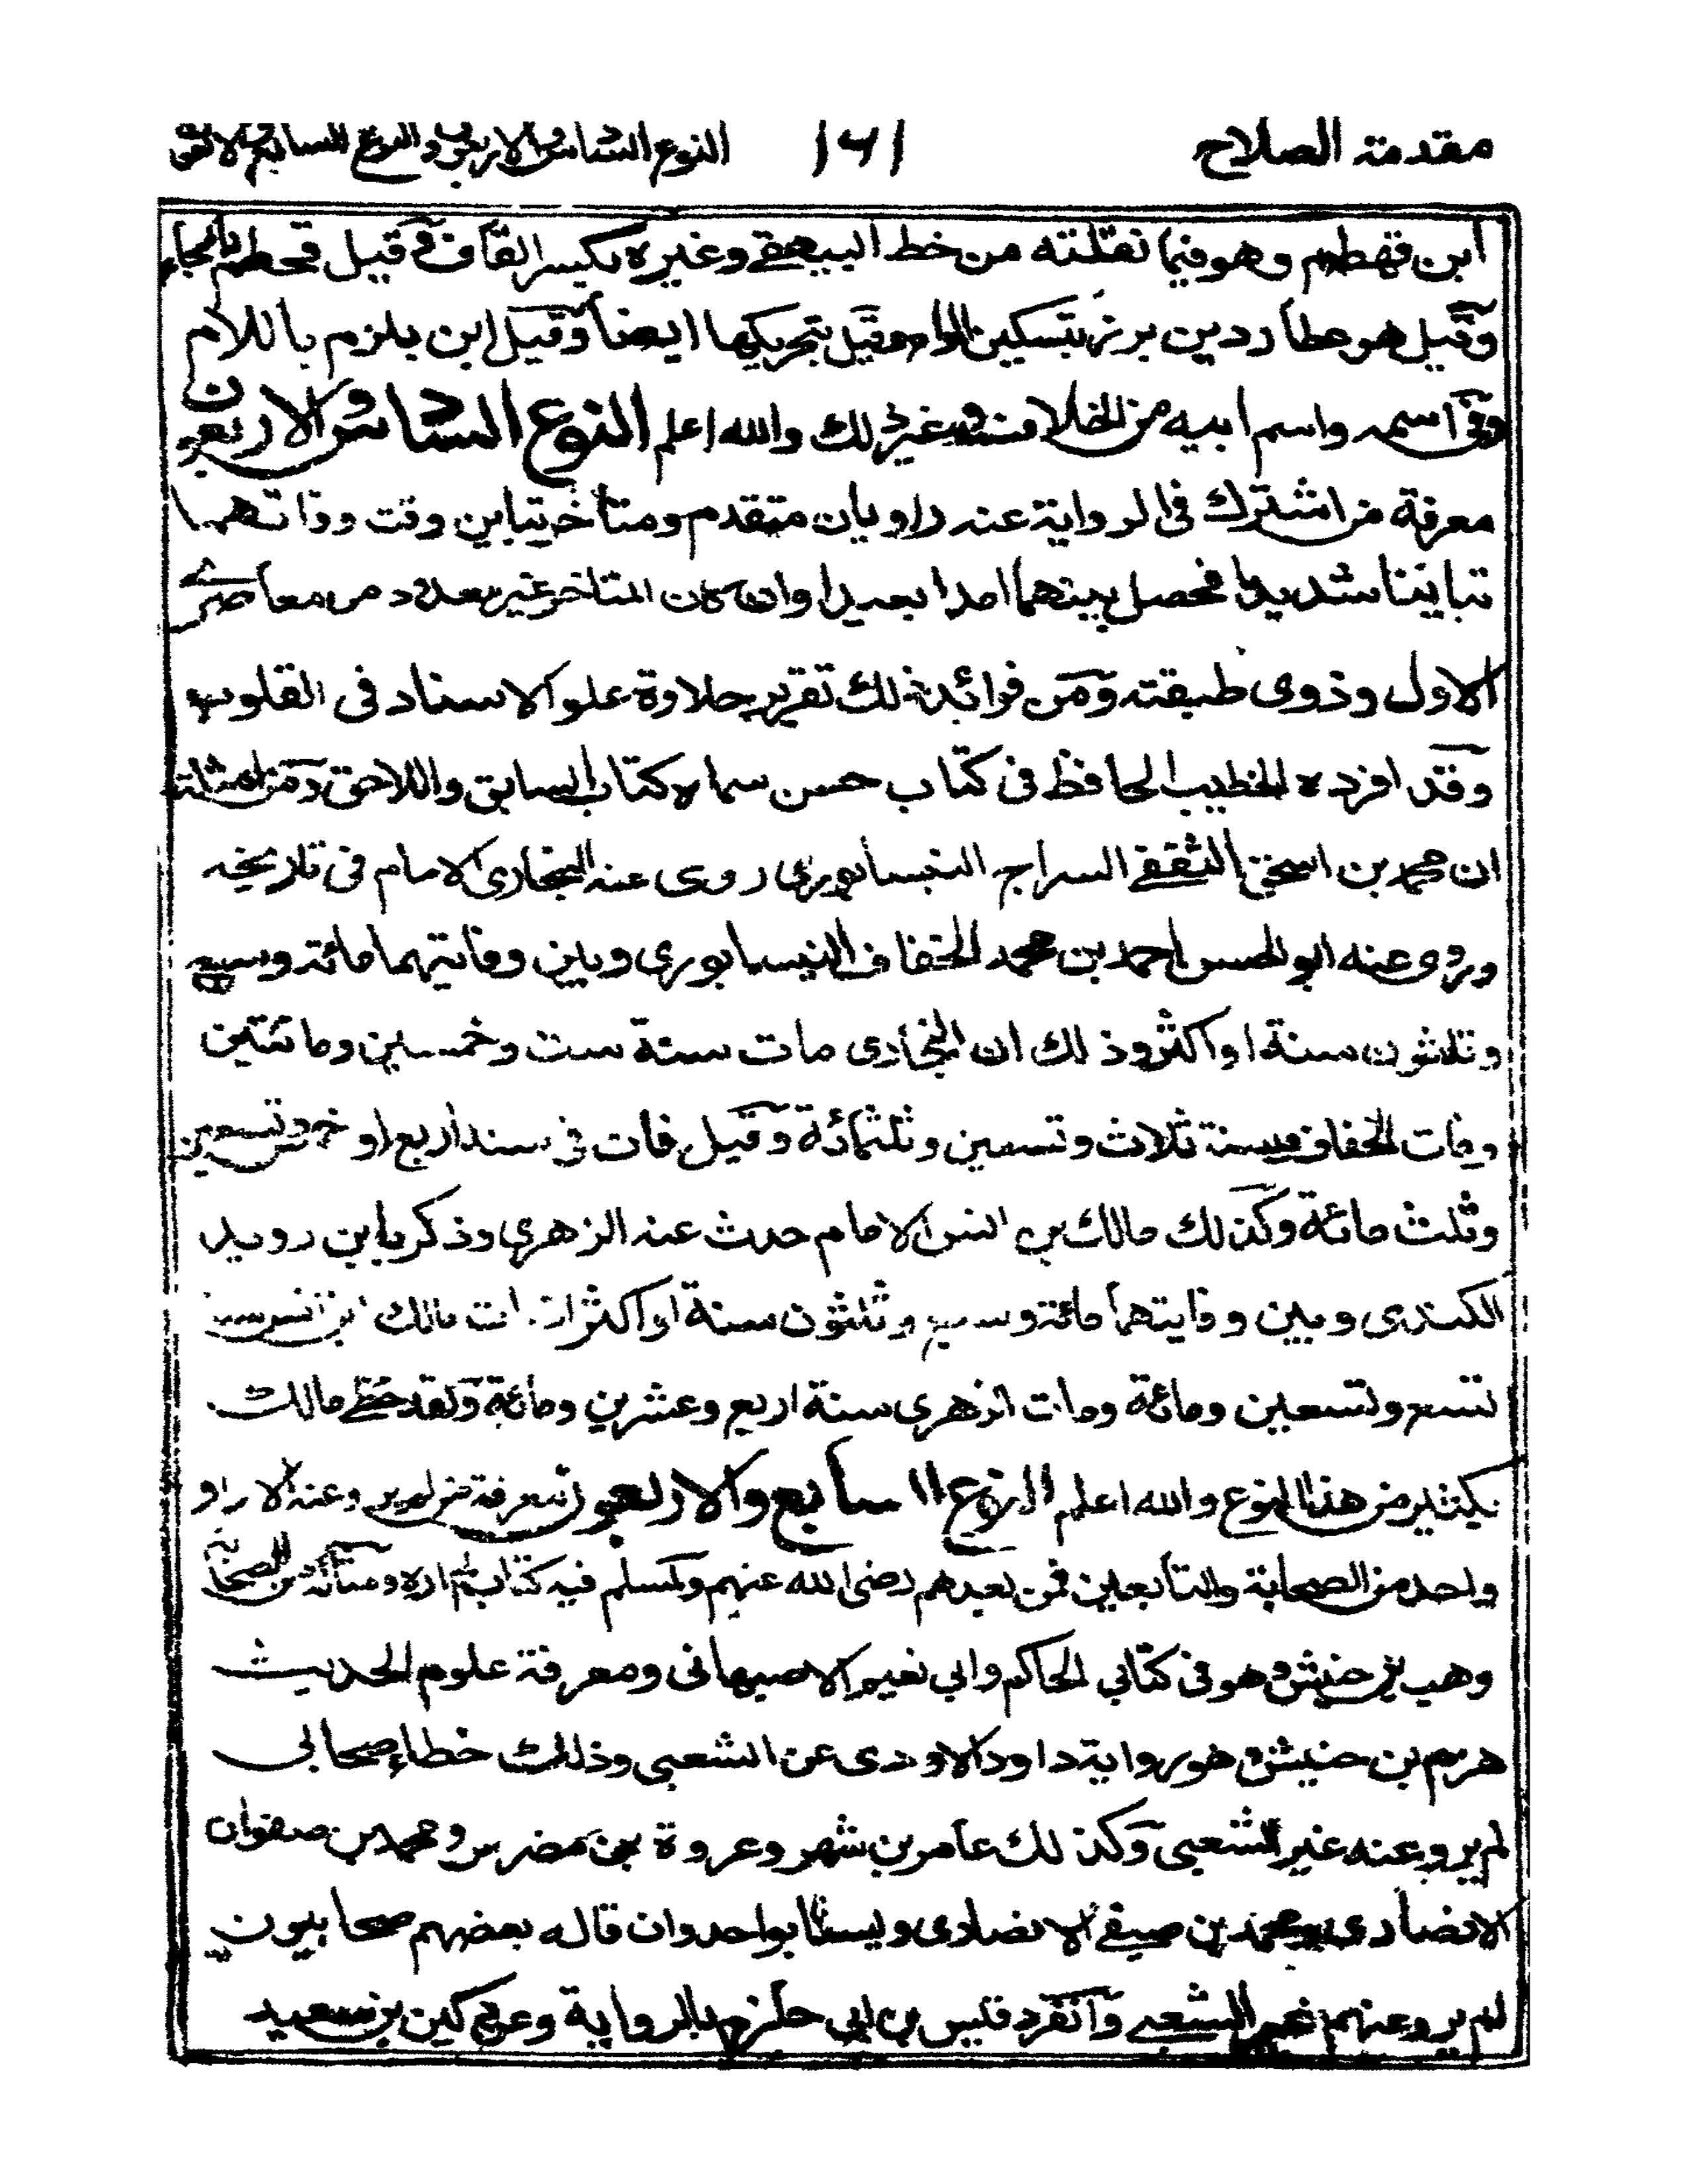 مقدمة الصلاح ١٦١ النوع السادس والاربعون والنوع السابع والاربعون
ابن قهطم وهو فيما نقلته من خط البيهقي وغيره بكسر القاف وقيل قحطم بالحاء
وقيل هو عطارد بن برز بتسكين الراء وقيل بتحريكها ايضا وقيل ابن بلزم باللام
وفي اسمه واسم ابيه من الخلاف غير ذلك والله اعلم النوع السادس والاربعون
معرفة من اشترك في الرواية عنه راويان متقدم ومتأخر تباين وقت وفاتهما
تباينا شديدا فحصل بينهما امدا بعيدا وان كان المتاخر غير معدود من معاصري
الاول وذوي طبقته ومن فوائد ذلك تقرير حلاوة علو الاسناد في القلوب
وقد افرده الخطيب الحافظ في كتاب حسن سماه كتاب السابق واللاحق ومن امثلته
ان محمد بن اسحق الثقفي السراج النيسابوري روى عنه البخاري الامام في تاريخه
وروى عنه ابو الحسين احمد بن محمد الخفاف النيسابوري وبين وفاتيهما مائة وسبع
وثلاثون سنة او اكثر وذلك ان البخاري مات سنة ست وخمسين ومائتين
ومات الخفاف سنة ثلاث وتسعين وثلثمائة وقيل مات في سنة اربع او خمس وتسعين
وثلث مائة وكذلك مالك بن انس الامام حدث عنه الزهري وزكريا بن دويد
الكندي وبين وفايتهما مائة وسبع وثلثون سنة او اكثر اذ مات مالك ابن انس سنة
تسع وتسعين ومائة ومات الزهري سنة اربع وعشرين ومائة ولقد حظي مالك
بكثير من هذا النوع والله اعلم النوع السابع والاربعون معرفة من لم يرو عنه الا راو
واحد من الصحابة والتابعين فمن بعدهم رضى الله عنهم ولمسلم فيه كتاب لم اره ومثاله من الصحابة
وهب بن خنبش وهو في كتابي الحاكم وابي نعيم الاصبهاني ومعرفة علوم الحديث
هرم بن خنبش وهو رواية داود الاودي عن الشعبي وذلك خطاء صحابي
لم يرو عنه غير الشعبي وكذلك عامر بن شهر وعروة بن مضرس ومحمد بن صفوان
الانصاري ومحمد بن صيفي الانصاري وليسا بواحد وان قاله بعضهم صحابيون
لم يرو عنهم غير الشعبي وانفرد قيس بن ابي حازم بالرواية وعن دكين بن سعيد